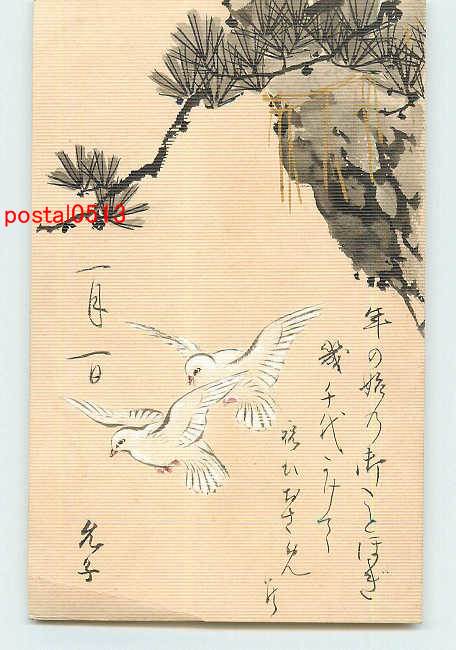 年の始の御ことほぎ
幾千代かけて
祝ひおさめん
一月一日
允子
postal0513